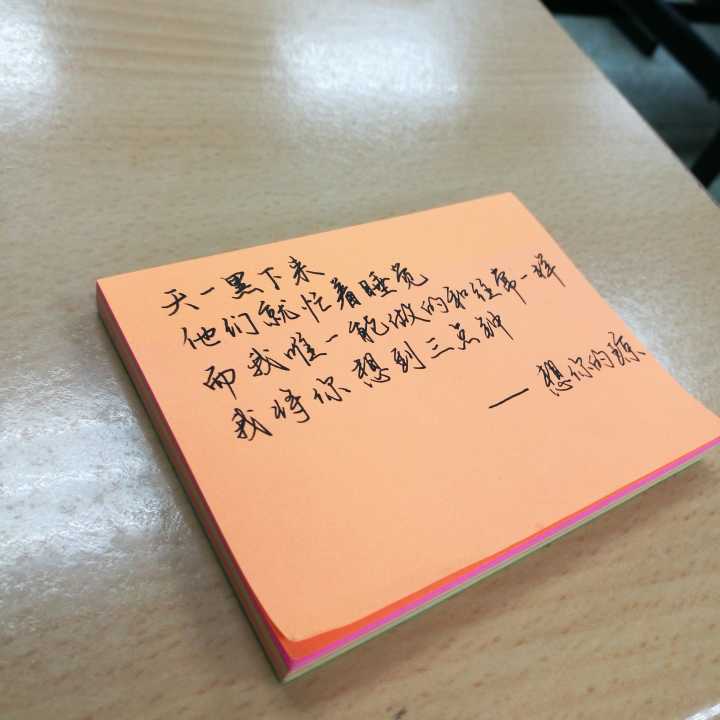 天一黑下来
他们就忙着睡觉
而我唯一能做的和经常一样
我将你想到三点钟
——想你的琼